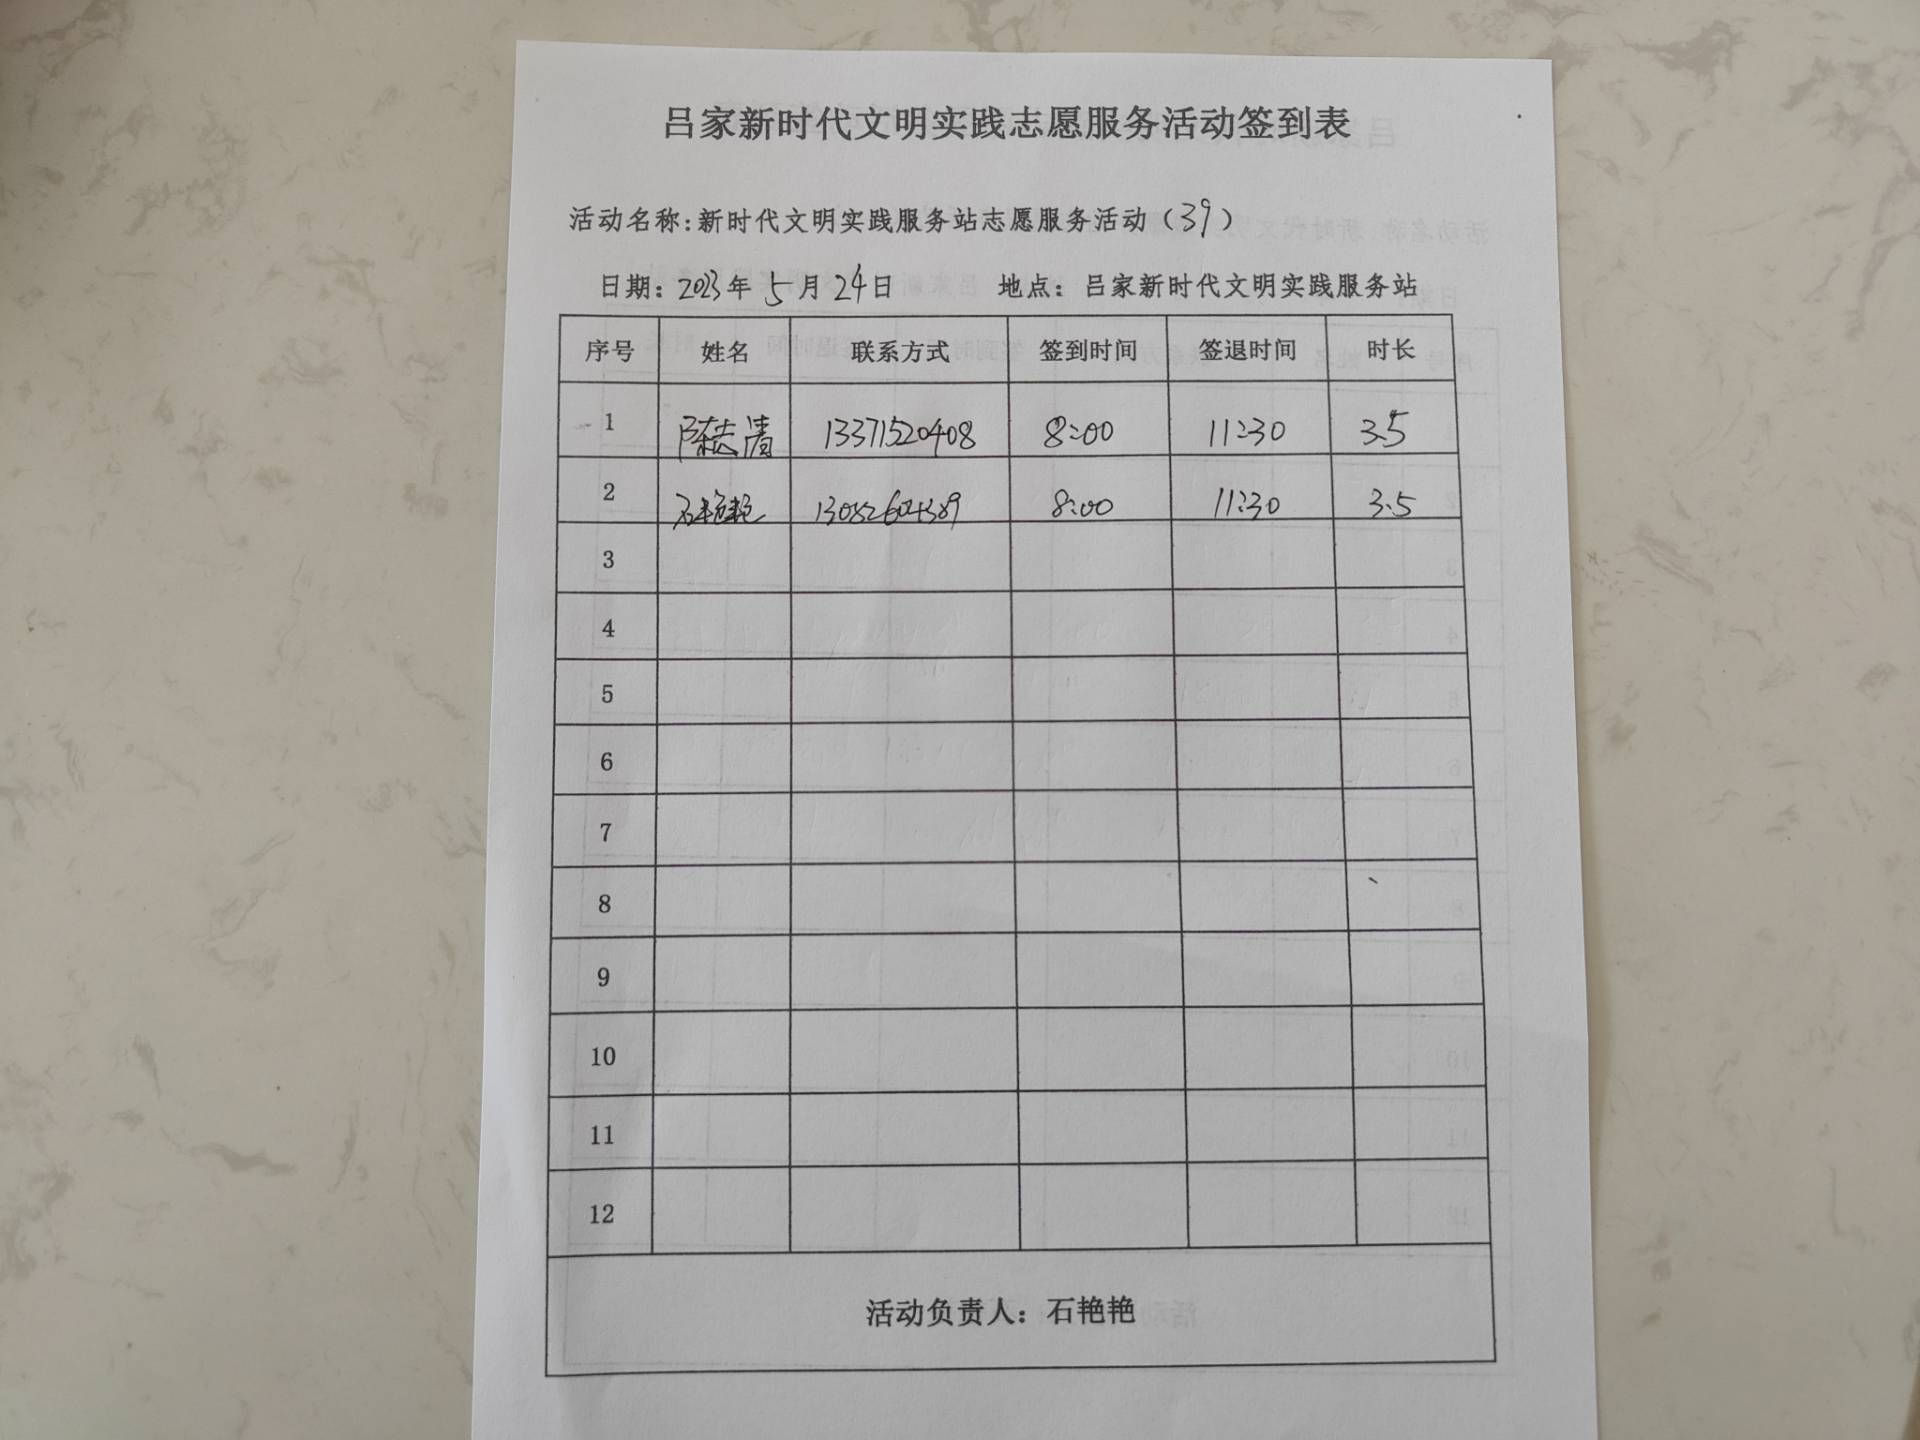 吕家新时代文明实践志愿服务活动签到表
活动名称:新时代文明实践服务站志愿服务活动（39）
日期：2023年 5 月 24日 地点：吕家新时代文明实践服务站
序号 姓名 联系方式 签到时间 签退时间 时长
1 陈志清 13371520408 8:00 11:30 3.5
2 石艳艳 8:00 11:30 3.5
3
4
5
6
7
8
9
10
11
12
活动负责人：石艳艳